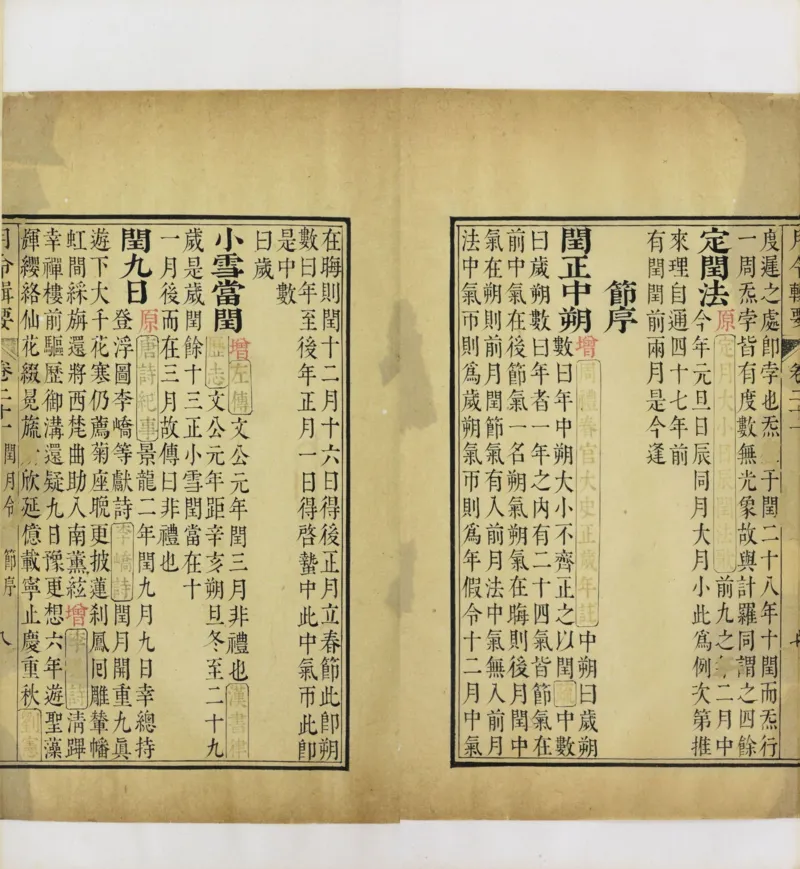 月令輯要 卷二十一
度遲之處卽孛也炁于閏二十八年十閏而炁行
一周炁孛皆有度數無光象故與計羅同謂之四餘
定閏法 原 定月大小 法 前九之二月中
今年元旦日辰同月大月小此爲例次第推
來理自通四十七年前
有閏閏前兩月是今逢
節序
閏正中朔 增 周禮春官大史正歲年註 中朔曰歲朔
數曰年中朔大小不齊正之以閏 中數
曰歲朔數曰年者一年之內有二十四氣皆節氣在
前中氣在後節氣一名朔氣朔氣在晦則後月閏中
氣在朔則前月閏節氣有入前月法中氣無入前月
法中氣帀則爲歲朔氣帀則爲年假令十二月中氣
在晦則閏十二月十六日得後正月立春節此卽朔
數曰年至後年正月一日得啓蟄中此中氣帀此卽
是中數
曰歲
小雪當閏 增 左傳 文公元年閏三月非禮也 漢書律
歷志 文公元年距辛亥朔旦冬至二十九
歲是歲閏餘十三正小雪閏當在十
一月後而在三月故傳曰非禮也
閏九日 原 唐詩紀事 景龍二年閏九月九日幸總持
登浮圖李嶠等獻詩 李嶠詩 閏月開重九眞
遊下大千花寒仍薦菊座晚更披蓮刹鳳回雕輦幡
虹間綵旃還將西梵曲助入南薰絃 增 詩 清蹕
幸禪樓前驅歷御溝還疑九日豫更想六年遊聖藻
輝纓絡仙花綴冕旒欣延億載寧止慶重秋
月令輯要 卷二十一 閏月令 節序 八